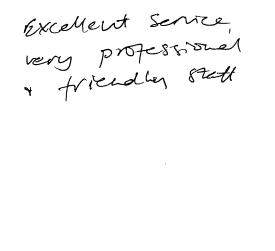 Excellent service,
very professional
& friendly staff